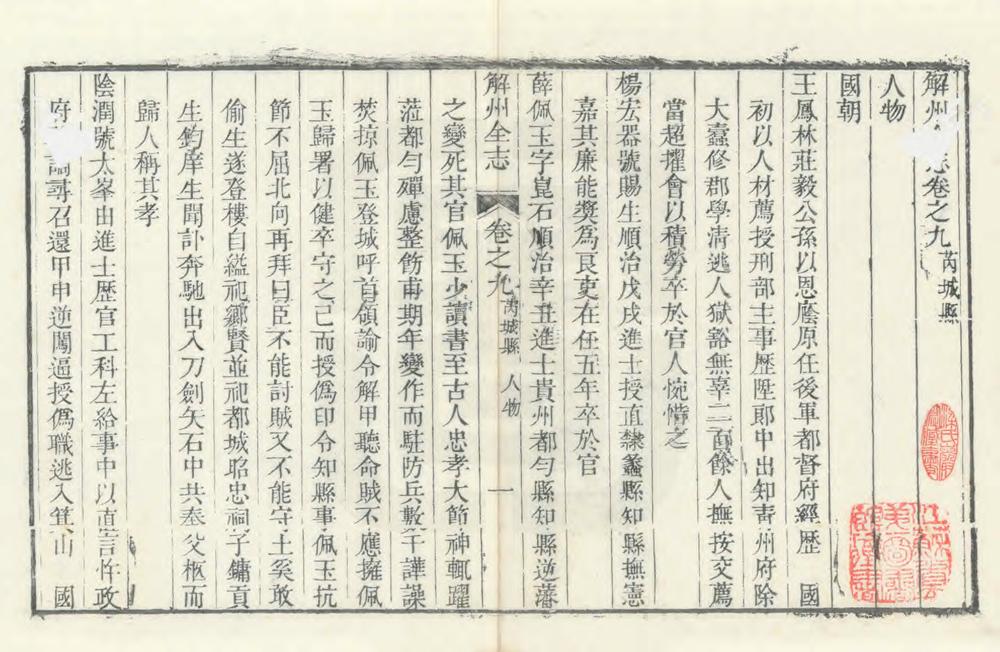 解州 志卷之九 芮城縣
人物
國朝
王鳳林莊毅公孫以恩廕原任後軍都督府經歷 國
初以人材薦授刑部主事歷陞郎中出知青州府除
大蠹修郡學清逃人獄豁無辜二百餘人撫按交薦
當超擢會以積勞卒於官人惋惜之
楊宏器號賜生順治戊戌進士授直隸蠡縣知縣撫憲
嘉其廉能獎為良吏在任五年卒於官
薛佩玉字崑石順治辛丑進士貴州都勻縣知縣逆藩
解州全志 卷之九 芮城縣 人物 一
之變死其官佩玉少讀書至古人忠孝大節神輒躍
蒞都勻殫慮整飭甫期年變作而駐防兵數千譁譟
焚掠佩玉登城呼首領諭令解甲聽命賊不應擁佩
玉歸署以健卒守之已而授偽印令知縣事佩玉抗
節不屈北向再拜曰臣不能討賊又不能守土奚敢
偷生遂登樓自縊祀鄉賢並祀都城昭忠祠子鏞貢
生鈞庠生聞訃奔馳出入刀劍矢石中共奉父柩而
歸人稱其孝
陰潤號太峯由進士歷官工科左給事中以直言忤政
府 謫尋召還甲申逆闖逼授偽職逃入箕山 國